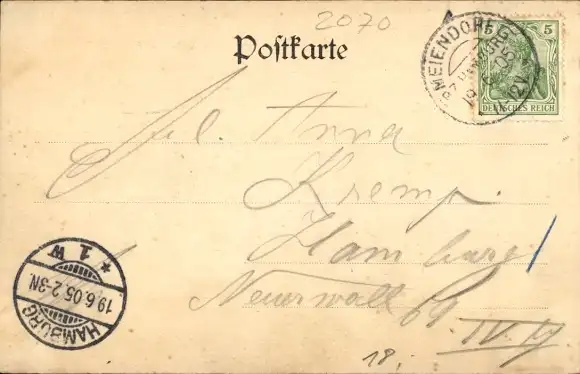 2070
Postkarte
MEIENDORF
5 5
DEUTSCHES REICH
Frl. Anna
Kremp
Hamburg
Neuerwall 69
IV.
HAMBURG
19.6.05.2-3N
* 1 W
18.